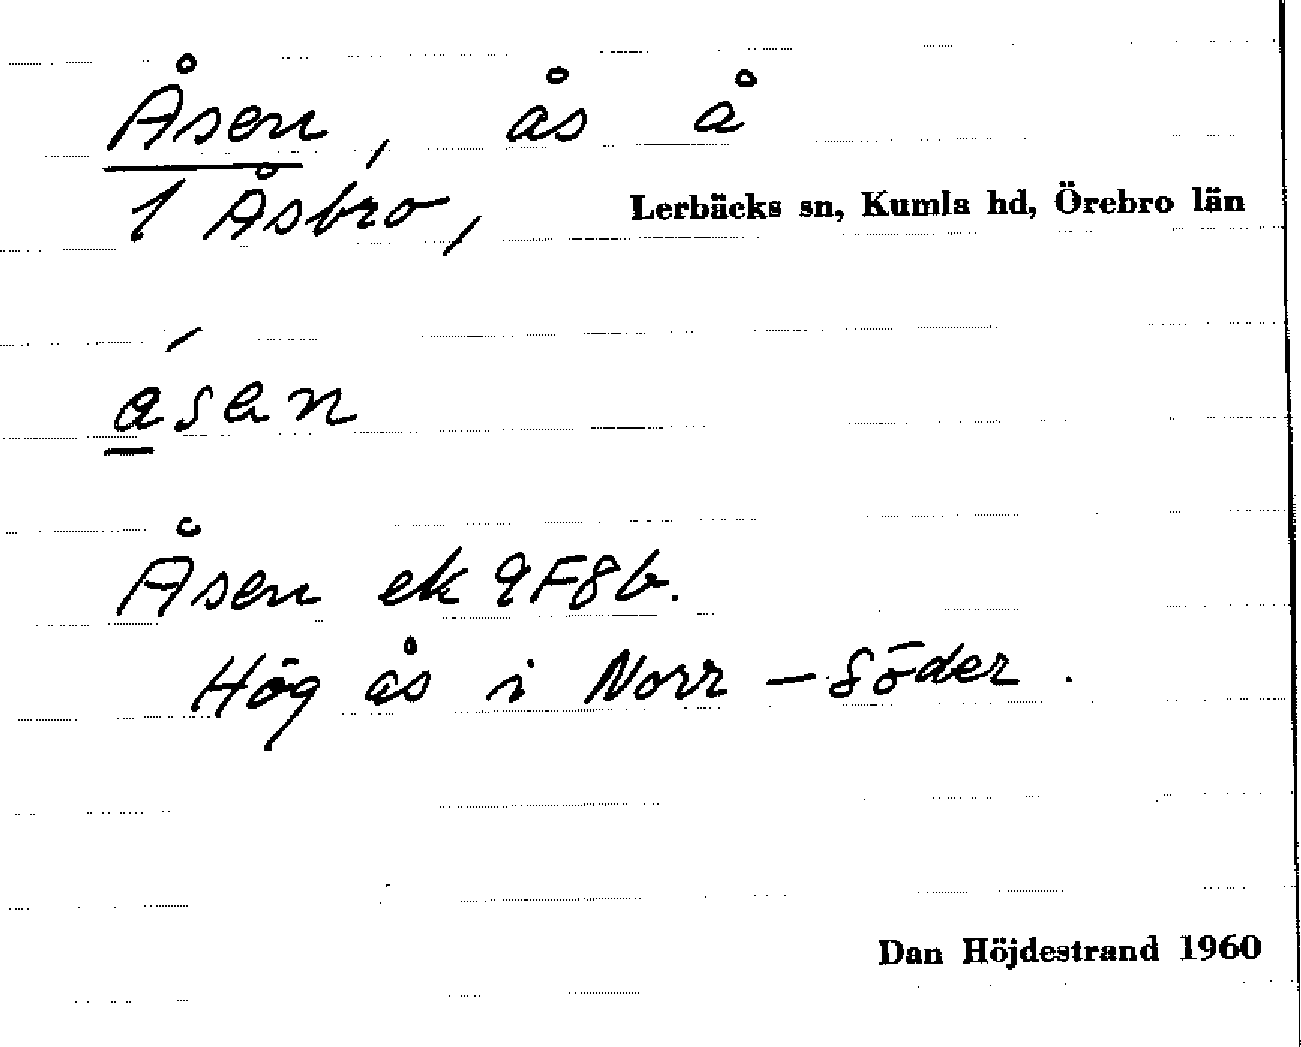 Åsen, ås å
1 Åsbro, Lerbäcks sn, Kumla hd, Örebro län
ásan
Åsen ek 9F8b.
Hög ås i Norr - Söder.
Dan Höjdestrand 1960